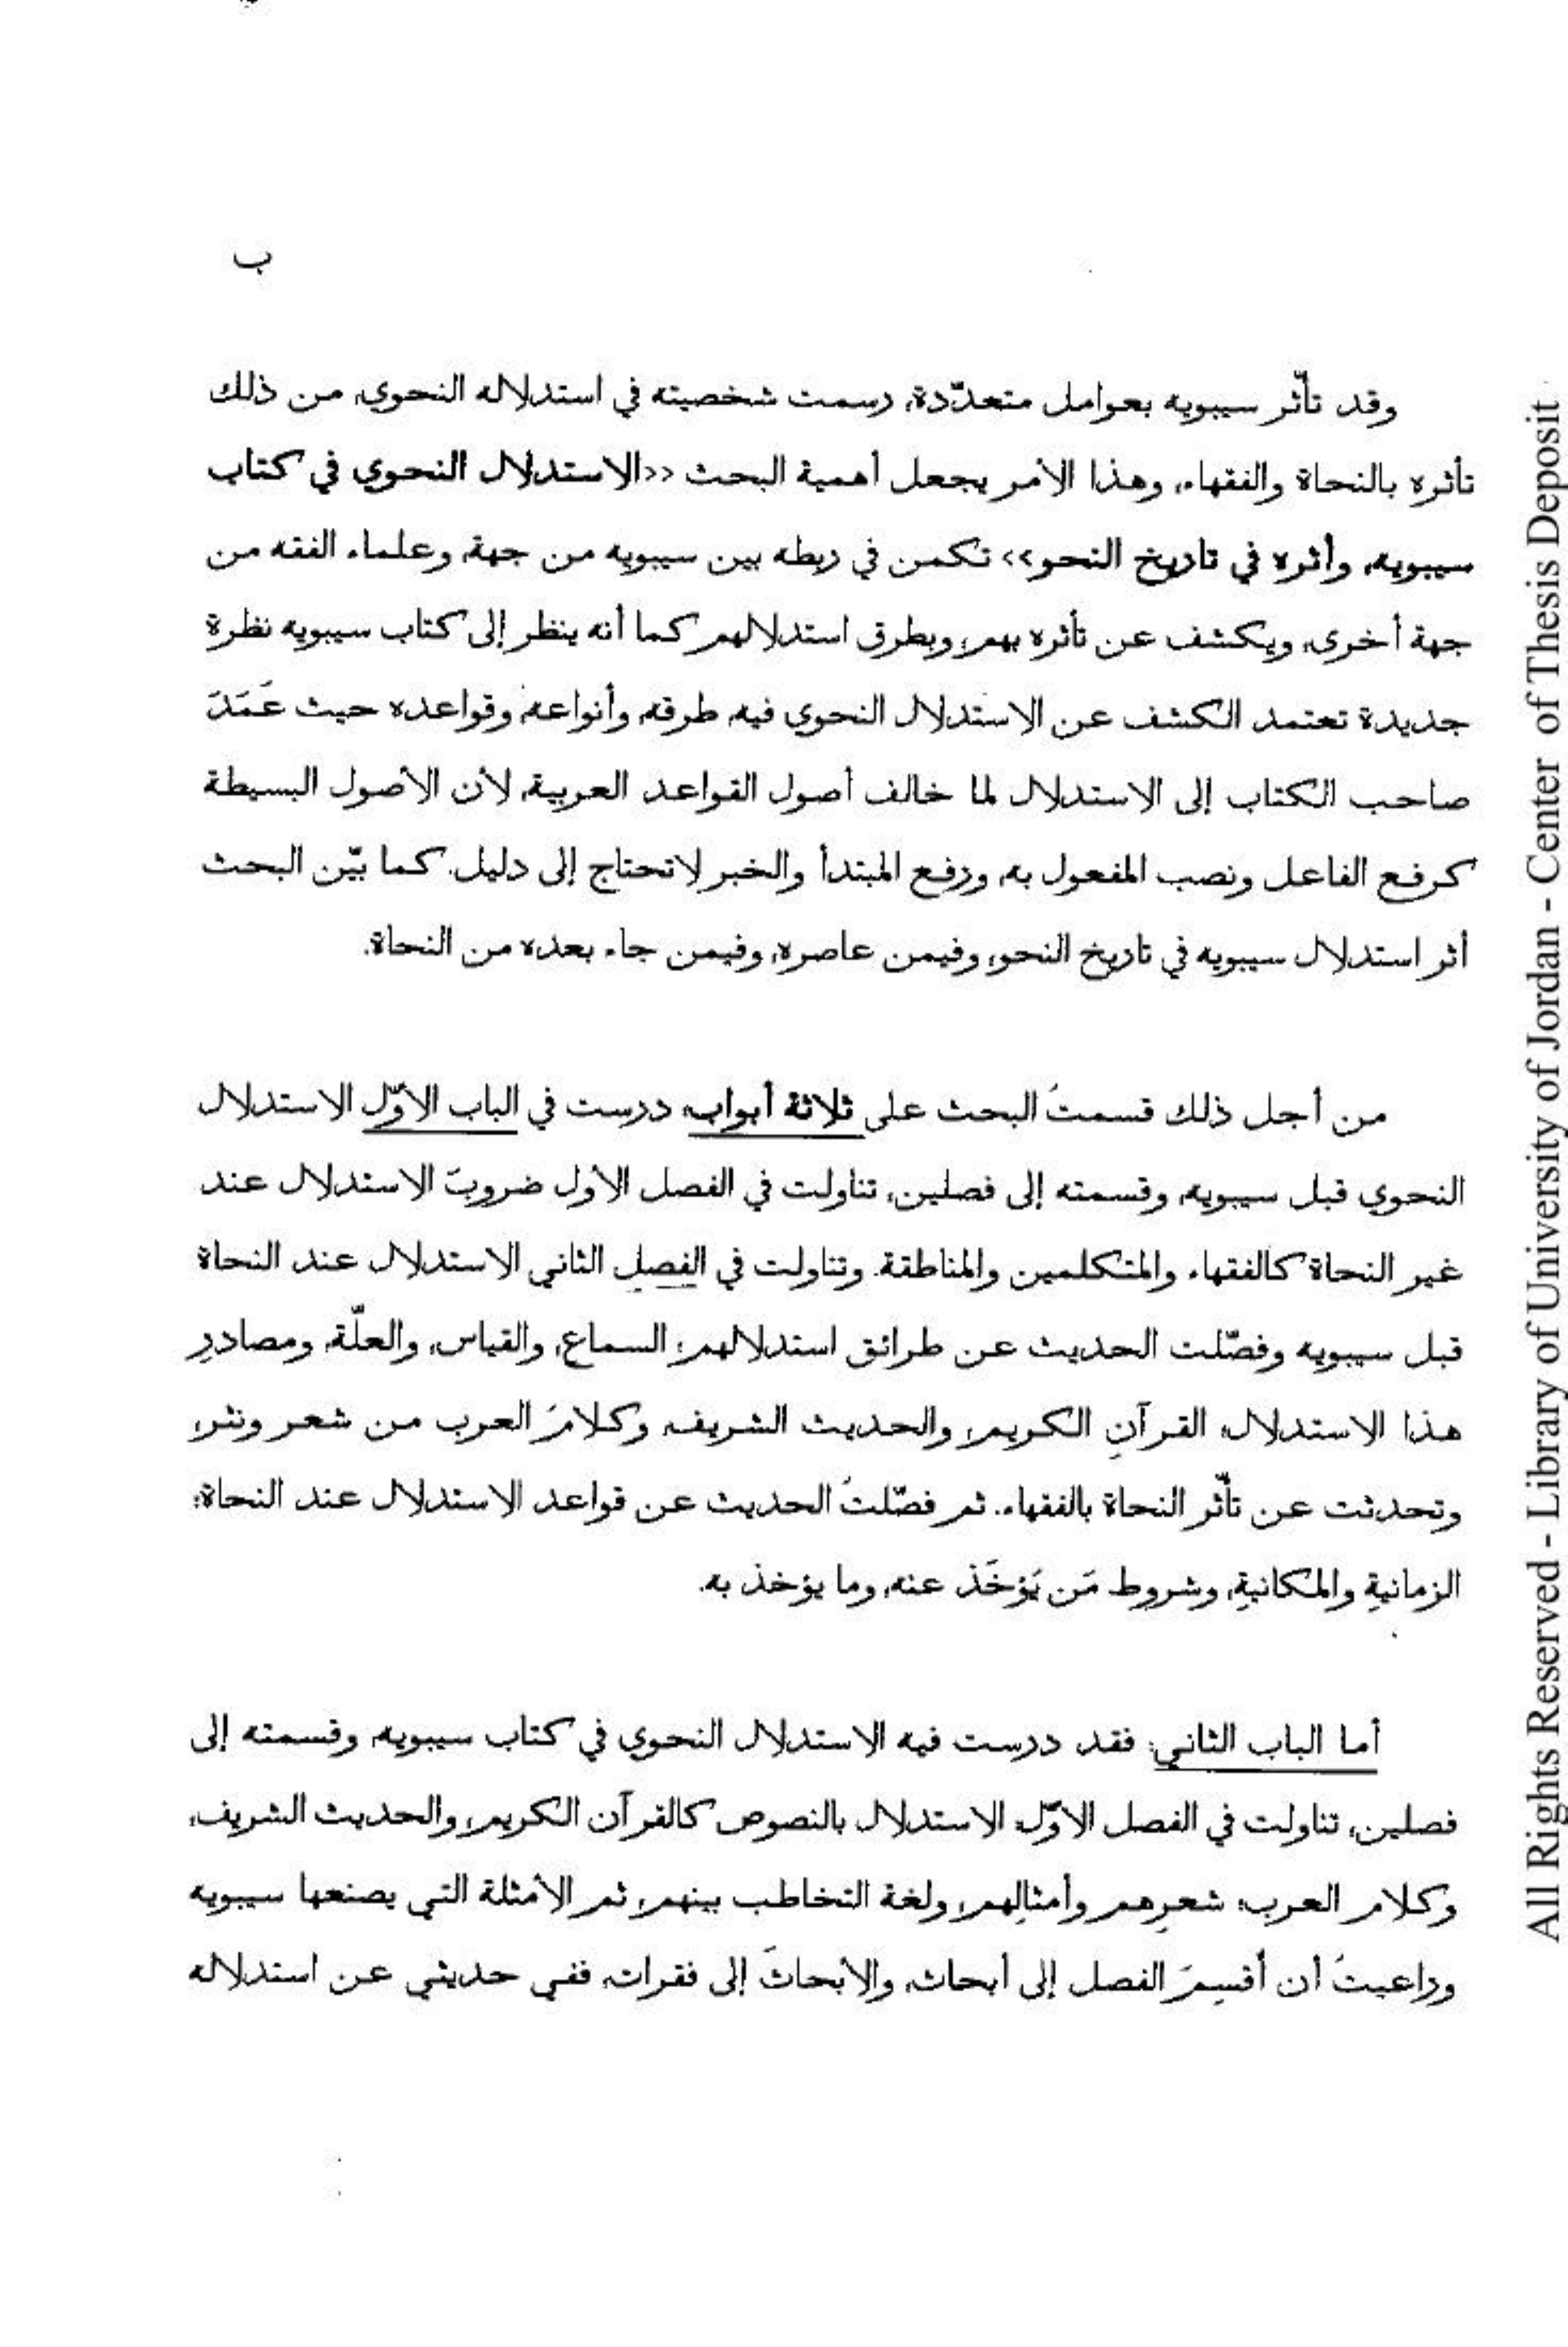 ب
وقد تأثّر سيبويه بعوامل متعدّدة، رسمت شخصيته في استدلاله النحوي، من ذلك
تأثره بالنحاة والفقهاء، وهذا الأمر يجعل أهمية البحث <<الاستدلال النحوي في كتاب
سيبويه، وأثره في تاريخ النحو>> تكمن في ربطه بين سيبويه من جهة، وعلماء الفقه من
جهة أخرى، ويكشف عن تأثره بهم، وبطرق استدلالهم كما أنه ينظر إلى كتاب سيبويه نظرة
جديدة تعتمد الكشف عن الاستدلال النحوي فيه، طرقه، وأنواعه، وقواعده حيث عَمَدَ
صاحب الكتاب إلى الاستدلال لما خالف أصول القواعد العربية، لأن الأصول البسيطة
كرفع الفاعل ونصب المفعول به، ورفع المبتدأ والخبر لاتحتاج إلى دليل. كما بيّن البحث
أثر استدلال سيبويه في تاريخ النحو، وفيمن عاصره، وفيمن جاء بعده من النحاة.
من أجل ذلك قسمتُ البحث على ثلاثة أبواب، درست في الباب الأوّل الاستدلال
النحوي قبل سيبويه، وقسمته إلى فصلين، تناولت في الفصل الأول ضروبَ الاستدلال عند
غير النحاة كالفقهاء، والمتكلمين والمناطقة. وتناولت في الفصل الثاني الاستدلال عند النحاة
قبل سيبويه وفصّلت الحديث عن طرائق استدلالهم: السماع، والقياس، والعلّة، ومصادرِ
هذا الاستدلال، القرآنِ الكريم، والحديث الشريف، وكلامَ العرب من شعر ونثر،
وتحدثت عن تأثّر النحاة بالفقهاء. ثم فصّلتُ الحديث عن قواعد الاستدلال عند النحاة:
الزمانيةِ والمكانيةِ، وشروط مَن يُؤخَذ عنه، وما يؤخذ به.
أما الباب الثاني: فقد درست فيه الاستدلال النحوي في كتاب سيبويه، وقسمته إلى
فصلين، تناولت في الفصل الأوّل، الاستدلال بالنصوص كالقرآن الكريم، والحديث الشريف،
وكلام العرب، شعرِهم وأمثالِهم، ولغة التخاطب بينهم، ثم الأمثلة التي يصنعها سيبويه
وراعيتُ أن أقسِمَ الفصل إلى أبحاث، والأبحاثَ إلى فقرات، ففي حديثي عن استدلاله
All Rights Reserved - Library of University of Jordan - Center of Thesis Deposit